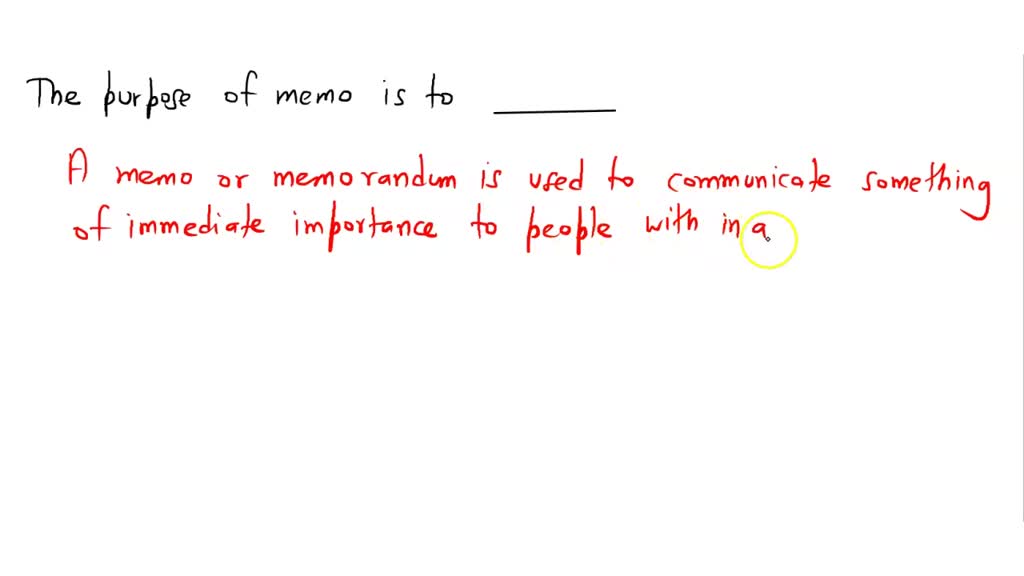 The purpose of memo is to ______
A memo or memorandum is used to communicate something
of immediate importance to people with in a